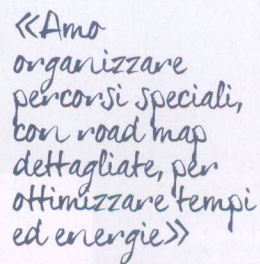 «Amo
organizzare
percorsi speciali,
con road map
dettagliate, per
ottimizzare tempi
ed energie»